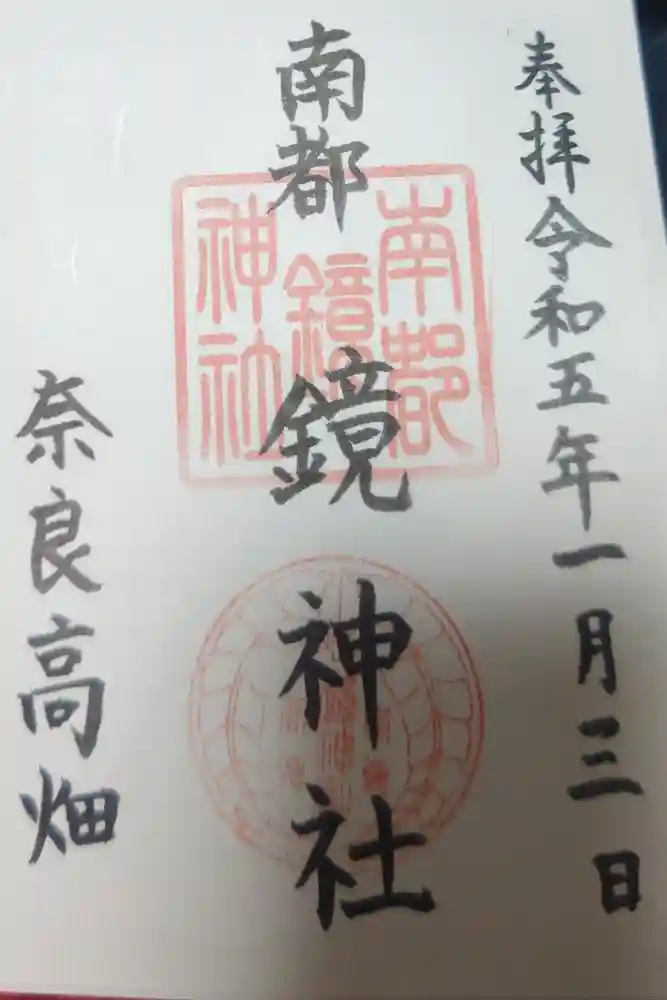 奉拝令和五年一月三日
南都鏡神社
南都
鏡
神社
奈良高畑